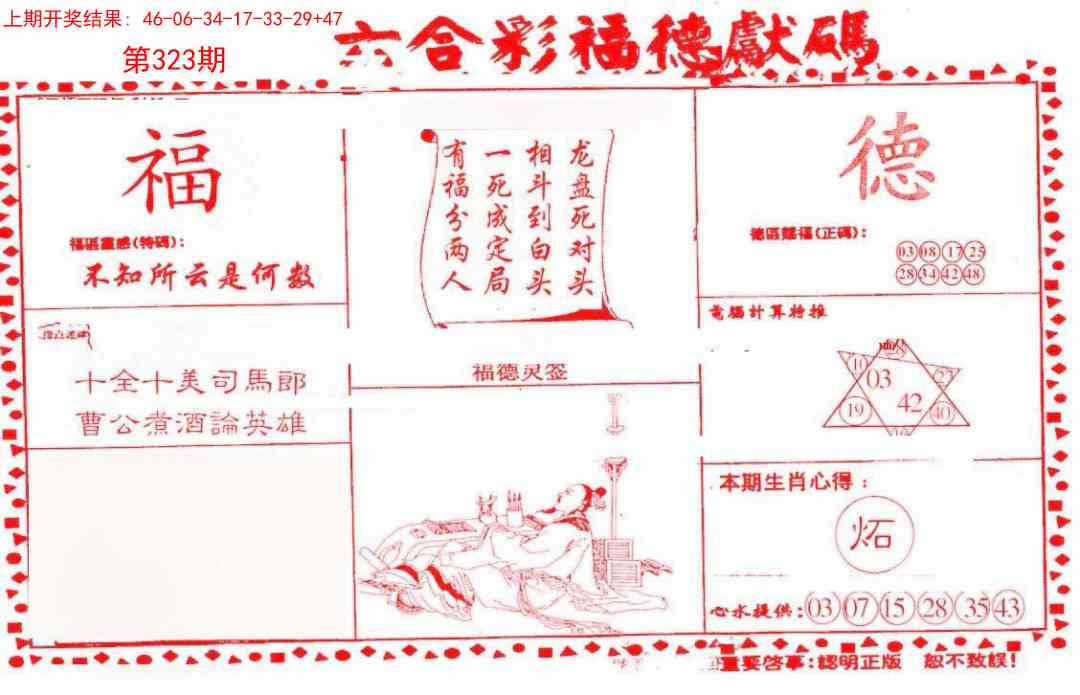 上期开奖结果：46-06-34-17-33-29+47
第323期
六合彩福德獻碼
福
福區靈感(特碼)：
不知所云是何数
十全十美司馬郎
曹公煮酒論英雄
龙盘死对头
相斗到白头
一死成定局
有福分两人
福德灵签
德
德區賜福(正碼)：
03 08 17 25
28 34 42 48
電腦計算特推
10
03
27
19
42
40
本期生肖心得：
炻
心水提供：03 07 15 28 35 43
重要啓事：認明正版 恕不致誤！